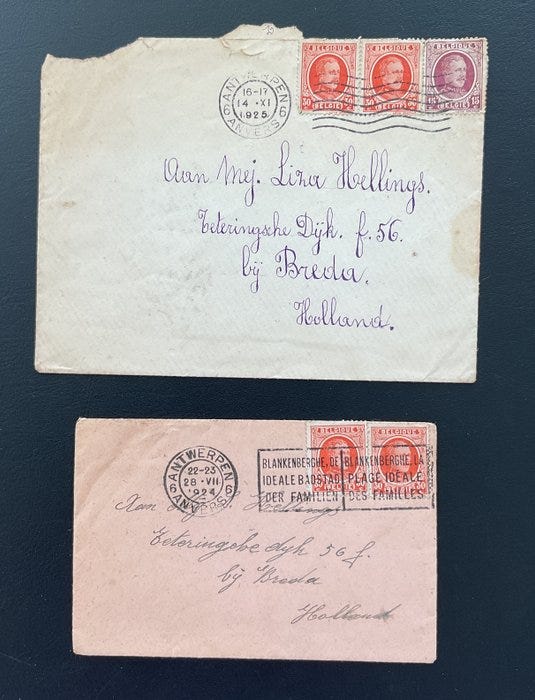 BELGIQUE BELGIQUE BELGIQUE
30 30 30 15 15
BELGIË BELGIË BELGIË
ANTWERPEN
16-17
14 ·XI
1925
6 6
ANVERS
Aan Mej. Liza Hellings.
Teteringsche Dÿk. f. 56.
bÿ Breda.
Holland.
BELGIQUE BELGIQUE
ANTWERPEN
22-23
28 ·VII
1924
6 6
ANVERS
BLANKENBERGHE, DE BLANKENBERGHE, LA
IDEALE BADSTAD PLAGE IDEALE
DER FAMILIEN DES FAMILLES
Aan Hellings
Teteringsche dyk 56 f.
bÿ Breda
Holland